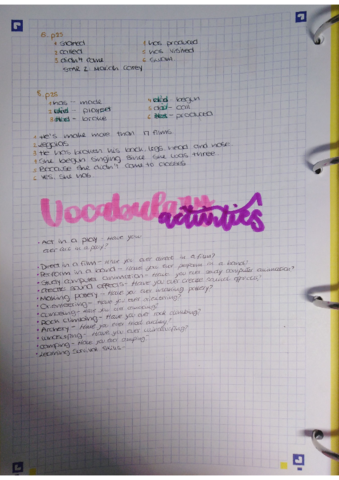 6. p35
1. started
5. has produced
2. called
6. has visited
3. didn't come
sense 2. Mariah Carey
5. p35
1. has - made
4. did - begun
2. did - played
3. has - broke
6. has - produced
1. He's make more than 17 films.
3. He has broken his back, legs, head and nose.
4. She begun singing since she was three
5. Because she didn't come to classes
6. Yes, she has
Vocabulary
activities
· Act in a play - Have you
ever act in a play?
· Direct in a film - Have you ever direct in a film?
· Perform in a band - Have you ever perform in a band?
· Study computer animation - Have you ever study computer animation?
· Create sound effects - Have you ever create sound effects?
· Making poetry - Have you ever making poetry?
· Orienteering - Have you ever orienteering?
· Climbing - Have you ever climbing?
· Rock climbing - Have you ever rock climbing?
· Archery - Have you ever archery?
· Camping - Have you ever camping?
· Learning survival skills -